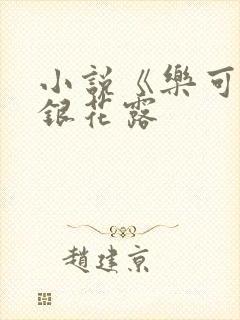 小説《樂可
銀花露
趙建京